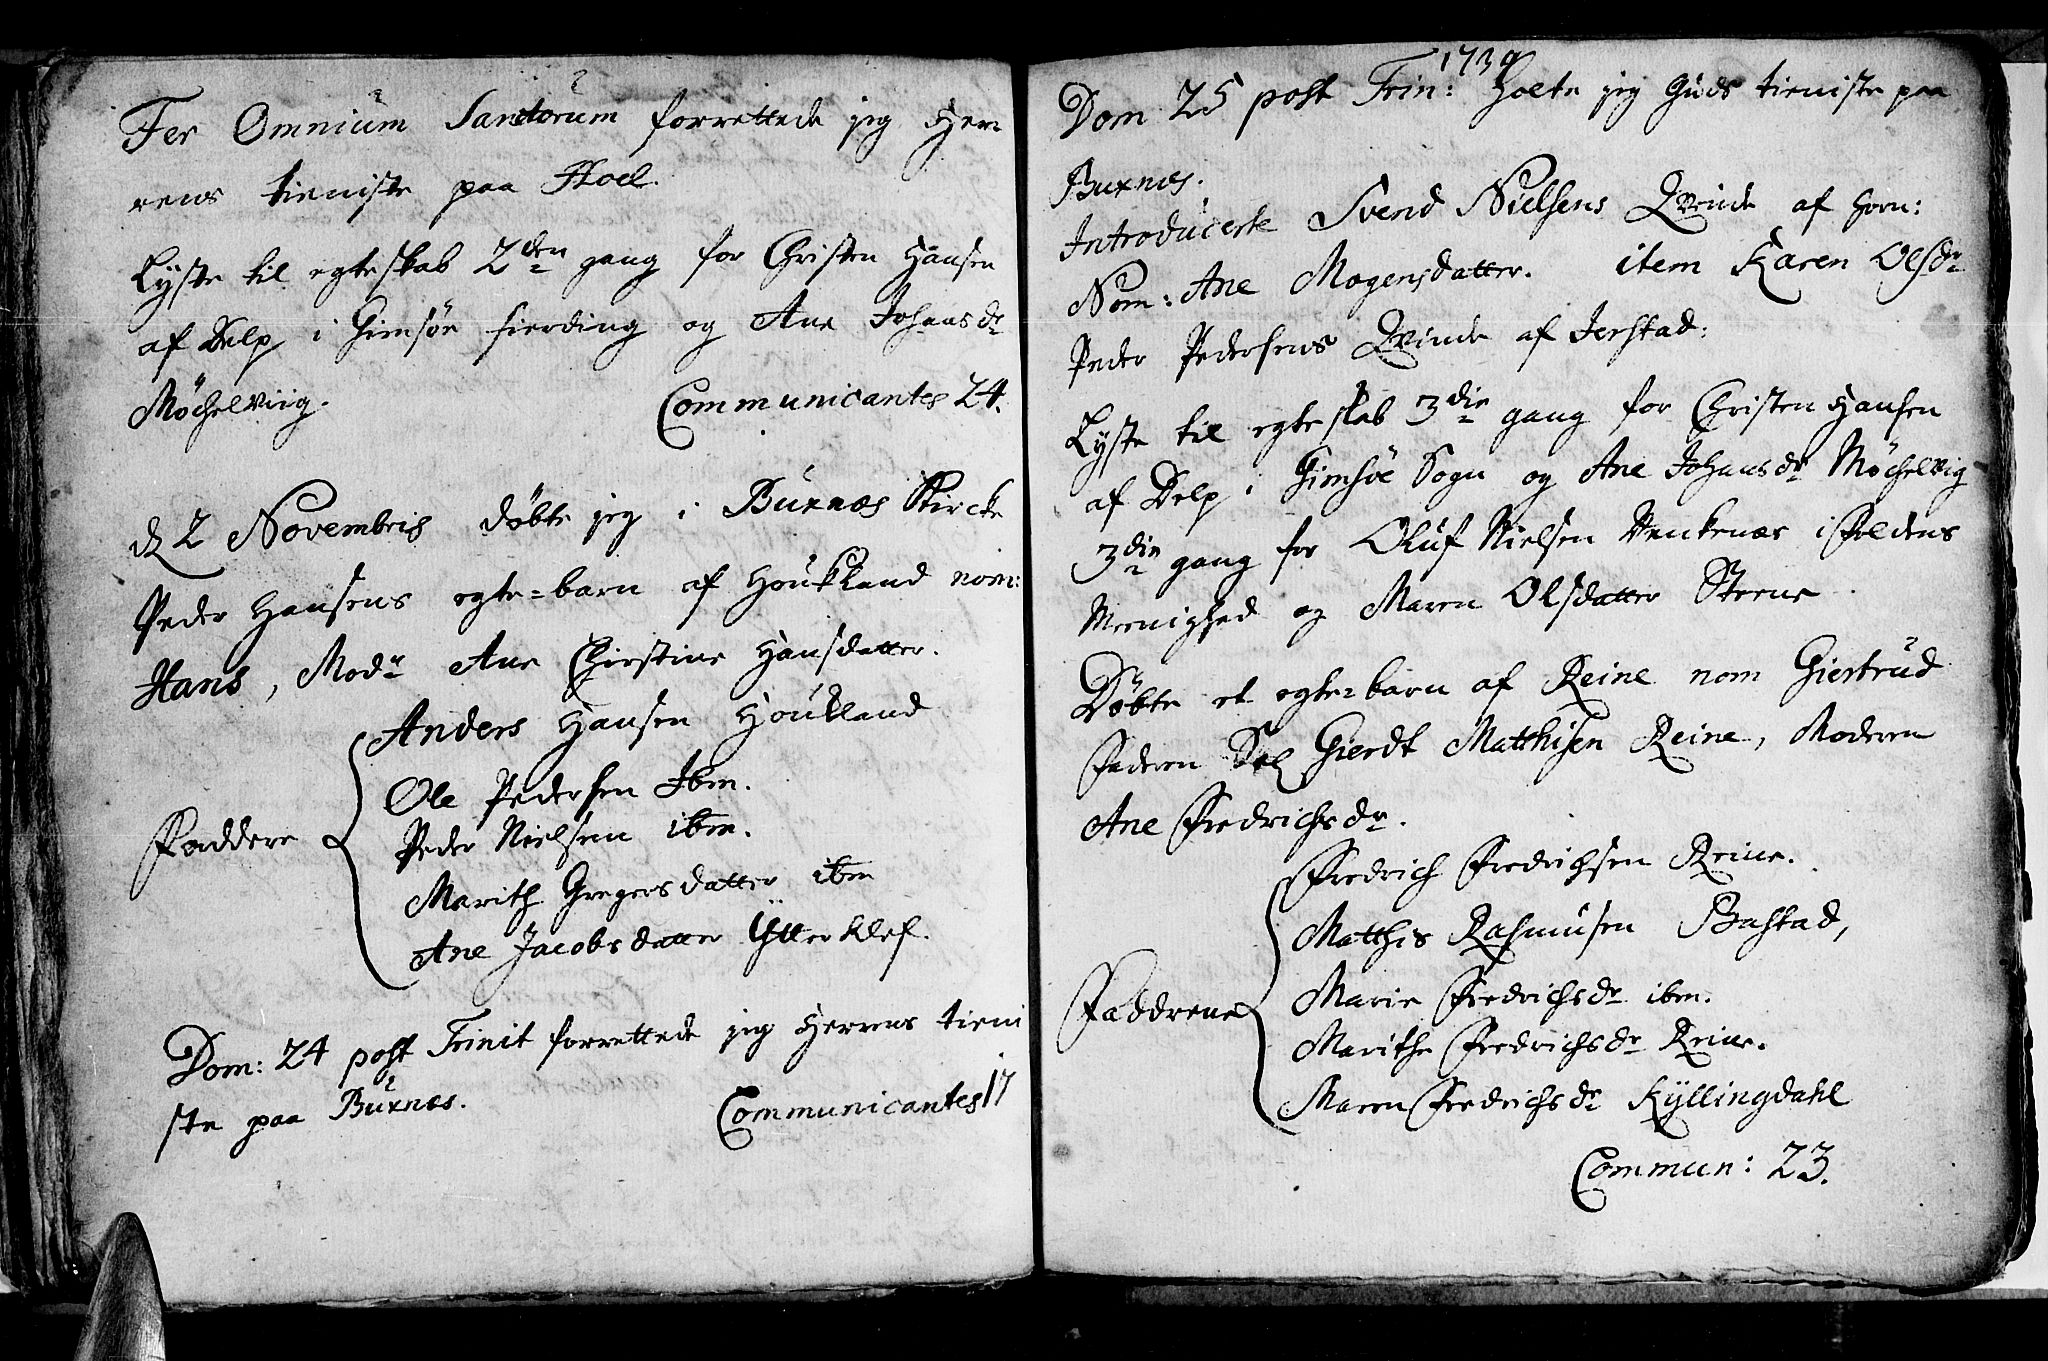 Fer Omnium Sanctorum forrettede jeg Her=
rens tieniste paa Hoel.
Lyste til egteskab 2den gang for Christen Hansen
af Delp i Gimsøe fierding og Ane Johansdr
Möchelviig. Communicantes 24.
d 2 Novembris döbte jeg i Buxnæs Kircke
Peder Hansens egte=barn af Houkland nom:
Hans, Modr Ane Christine Hansdatter.
Anders Hansen Houkland
Ole Pedersen Ibm.
Peder Nielsen ibm.
Faddere
Marith Gregersdatter ibm
Ane Jacobsdatter Ytterklef.
Dom: 24 post Trinit forrettede jeg Herrens tieni
ste paa Buxnæs. Communicantes 17
1739
Dom 25 post Trin: holte jeg Guds tieniste paa
Buxnæs.
Introducerte Svend Nielsens Qvinde af Horn:
Nom: Ane Mogensdatter. item Karen Olsdr
Peder Pedersens Qvinde af Jerstad:
Lyste til egteskab 3die gang for Christen Hansen
af Delp i Gimsöe Sogn og Ane Johansdr Möchelvig
3die gang for Oluf Nielsen Venkenæs i Foldens
Meenighed og Maren Olsdatter Steene.
Döbte et egte=barn af Reine nom Giertrud
Faderen Sal Gierdt Matthisen Reine, Moderen
Ane Fredrichsdr.
Fredrich Fredrichsen Reine.
Matthis Rasmusen Bastad,
Faddrene
Marie Fredrichsdr ibm.
Marithe Fredrichsdr Reine.
Maren Fredrichsdr Kyllingdahl
Commun: 23.